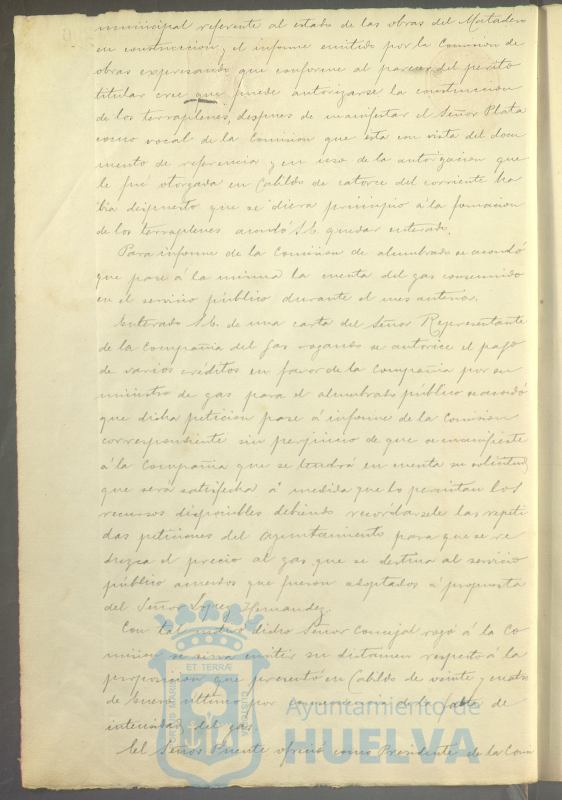 municipal referente al estado de las obras del Matadero
en construccion, y el informe emitido por la Comision de
obras expresando que conforme al parecer del perito
titular cree que puede autorizarse la construccion
de los terraplenes, despues de manifestar el Señor Plata
como vocal de la Comision que esta con vista del docu
mento de referencia y en uso de la autorizacion que
le fué otorgada en Cabildo de catorce del corriente ha
bia dispuesto que se diera principio á la formacion
de los terraplenes acordó S.E. quedar enterado.
Para informe de la Comision de alumbrado se acordó
que pase á la misma la cuenta del gas consumido
en el servicio público durante el mes anterior.
Enterado S.E. de una carta del Señor Representante
de la Compañia del Gas rogando se autorice el pago
de varios créditos en favor de la Compañia por su
ministro de gas para el alumbrado público se acordó
que dicha peticion pase á informe de la Comision
correspondiente sin perjuicio de que se manifieste
á la Compañia que se tendrá en cuenta su solicitud
que será satisfecha á medida que lo permitan los
recursos disponibles debiendo recordarsele las repeti
das peticiones del Ayuntamiento para que se re
duzca el precio al gas que se destina al servicio
público acuerdos que fueron adoptados á propuesta
del Señor Lopez Hernandez.
Con tal motivo dicho Señor Concejal rogó á la Co
mision se sirva emitir su dictamen respecto á la
proposicion que presentó en Cabildo de veinte y cuatro
de Enero último por consecuencia de la falta de
intensidad del gas.
El Señor Puente ofreció como Presidente de la Com
ET TERRÆ
Ayuntamiento de
HUELVA